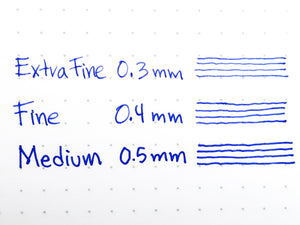 Extra Fine 0.3mm
Fine 0.4mm
Medium 0.5mm